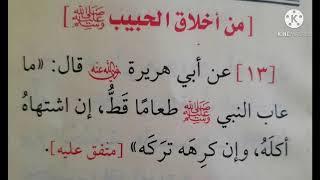 [ من أخلاق الحبيب ﷺ ]
[١٣] عن أبي هريرة رضي الله عنه قال: «ما
عاب النبي ﷺ طعامًا قَطُّ، إن اشتهاهُ
أكلَهُ، وإن كرِهَه تركَه» [متفق عليه].